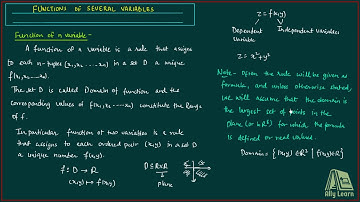 FUNCTIONS OF SEVERAL VARIABLES
Function of n variable -
A function of n variable is a rule that assigns
to each n-tuple (x₁,x₂,....xₙ) in a set D a unique
f(x₁,x₂,....xₙ).
The set D is called Domain of function and the
corresponding values of f(x₁,x₂,...xₙ) constitute the Range
of f.
In particular function of two variables is a rule
that assigns to each ordered pair (x,y) in a set D
a unique number f(x,y).
f : D → R
(x,y) ↦ f(x,y)
D ⊆ R×R
plane
z = f(x,y)
Dependent variable
Independent variables
z = x²+y²
Note - Often the rule will be given as
formula, and unless otherwise stated,
we will assume that the domain is
the largest set of points in the
plane (or ℝ²) for which the formula
is defined or real valued.
Domain = { (x,y) ∈ ℝ² | f(x,y) ∈ ℝ }
Ally Learn